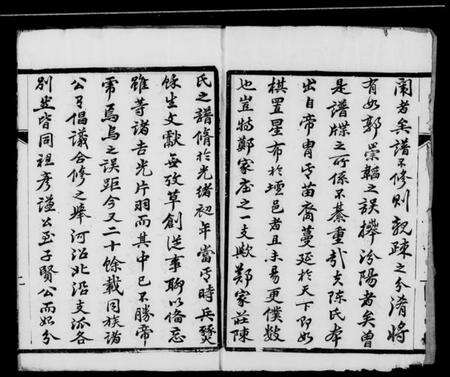 闕者矣譜不修則親疎之分淆將
有如郭崇韜之誤拜汾陽者矣曾
是譜牒之所係不綦重哉夫陳氏本
出自帝胄其苗裔蔓延於天下即如
棋置星布於壇邑者且未易更僕數
也豈特鄭家庄之一支歟鄭家莊陳
氏之譜脩於光緒初年當其時兵燹
餘生文獻無攷草創從事聊以備忘
雖等諸吉光片羽而其中已不勝帝
常焉烏之誤距今又二十餘載同族諸
公有倡議合修之舉河沿北沿支派各
別並皆同祖彥謹公至子賢公而始分